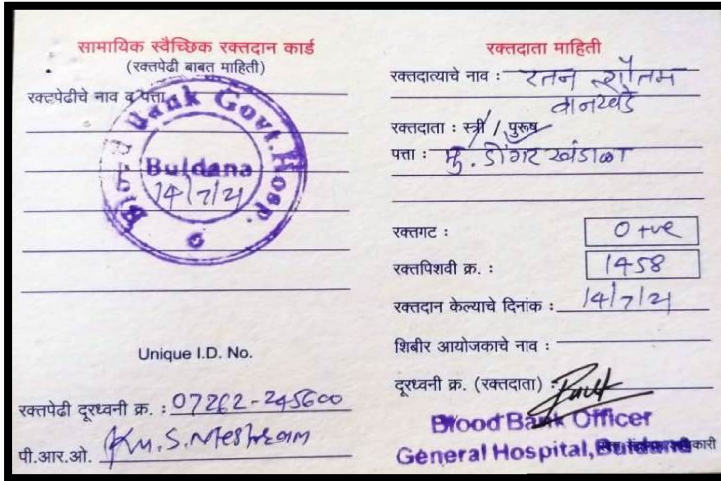 सामायिक स्वैच्छिक रक्तदान कार्ड
(रक्तपेढी बाबत माहिती)
रक्तपेढीचे नाव व पत्ता
Blood Bank Govt. Hosp.
Buldana
14/7/21
Unique I.D. No.
रक्तपेढी दूरध्वनी क्र. : 07262-245600
पी.आर.ओ. Ku. S. Meshram
रक्तदाता माहिती
रक्तदात्याचे नाव : रतन गौतम
वानखडे
रक्तदाता : स्त्री / पुरूष
पत्ता : मु. डोंगर खंडाळा
रक्तगट : O +ve
रक्तपिशवी क्र. : 1458
रक्तदान केल्याचे दिनांक : 14/7/21
शिबीर आयोजकाचे नाव :
दूरध्वनी क्र. (रक्तदाता) :
Blood Bank Officer
General Hospital, Buldana